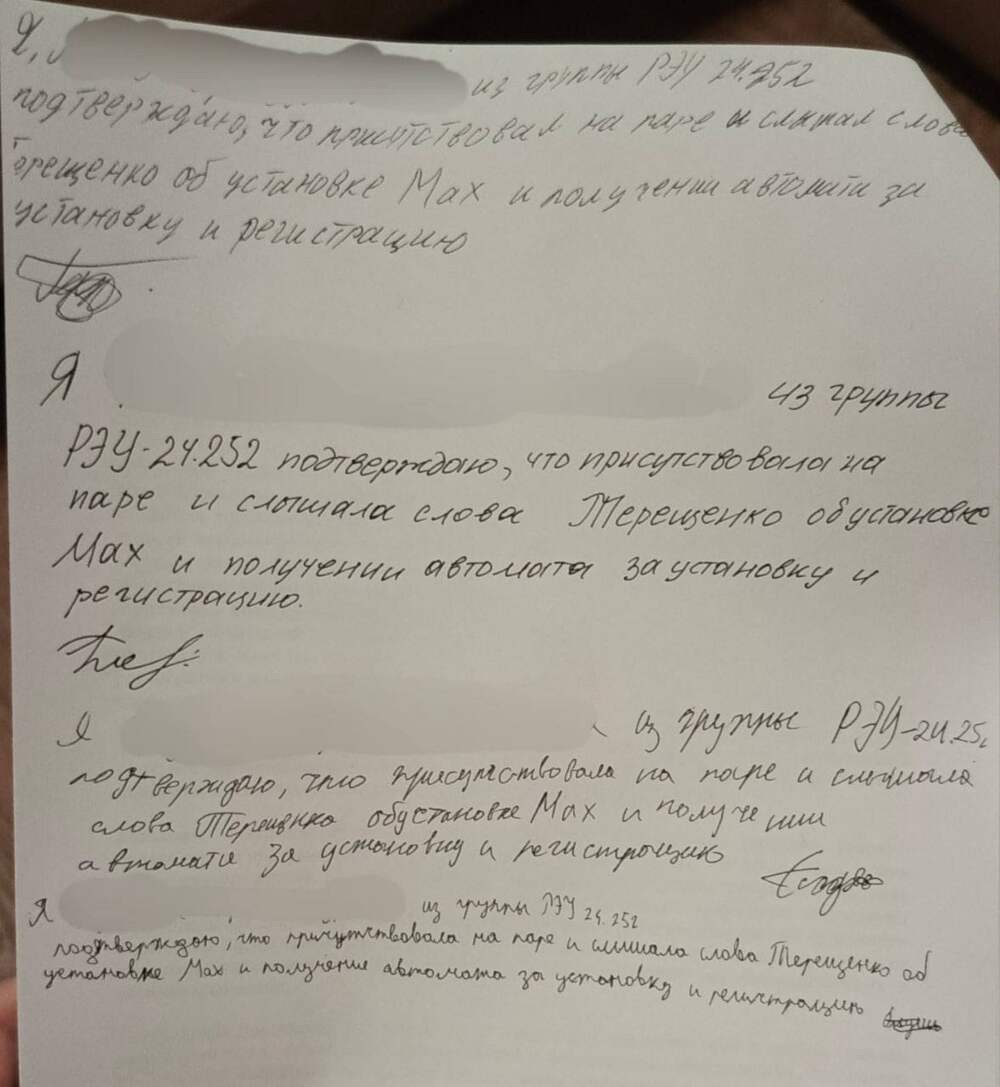 Я,
из группы РЭУ 24.252
подтверждаю, что присутствовал на паре и слышал слова
Терещенко об установке Max и получении автомати за
установку и регистрацию
Я
из группы
РЭУ-24.252 подтверждаю, что присутствовала на
паре и слышала слова Терещенко об установке
Max и получении автомата за установку и
регистрацию.
Я
из группы РЭУ-24.25
подтверждаю, что присутствовала на паре и слышала
слова Терещенко об установке Max и получении
автомати за установку и регистрацию
Я
из группы РЭУ 24.252
подтверждаю, что присутствовала на паре и слышала слова Терещенко об
установке Max и получение автомата за установку и регистрацию